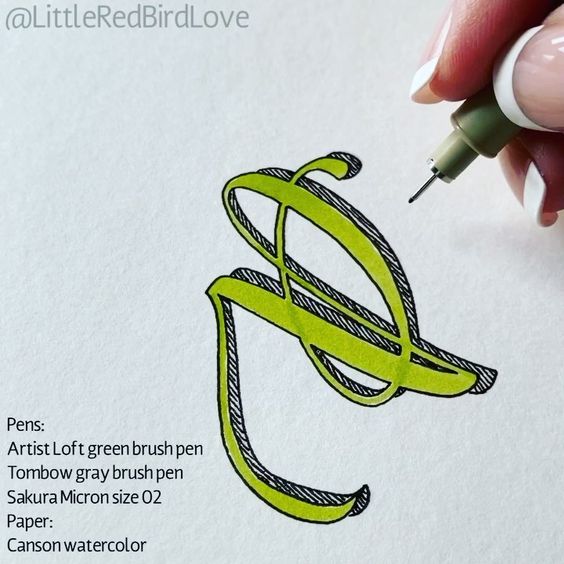 @LittleRedBirdLove
Pens:
Artist Loft green brush pen
Tombow gray brush pen
Sakura Micron size 02
Paper:
Canson watercolor